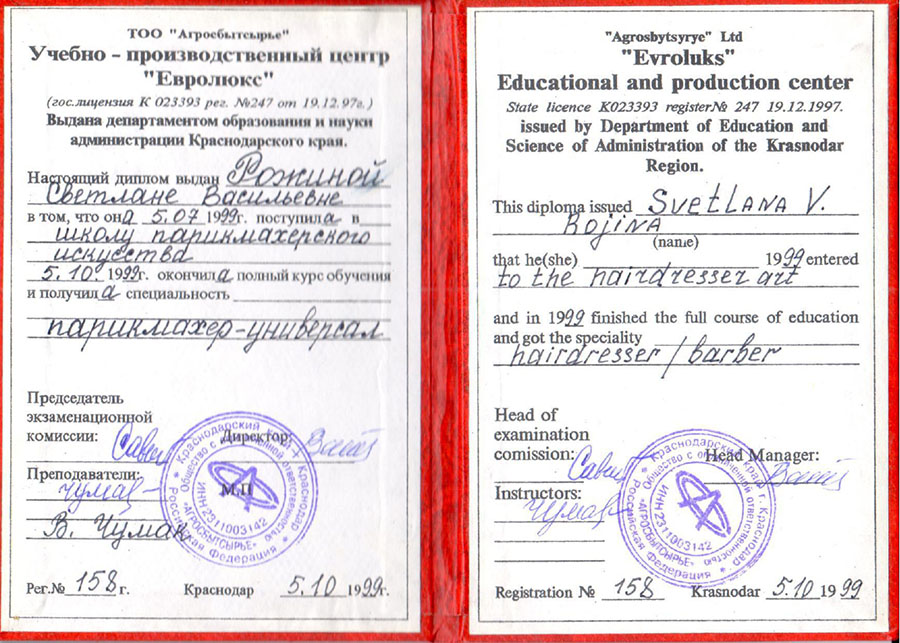 ТОО "Агросбытсырье"
Учебно - производственный центр
"Евролюкс"
(гос.лицензия К 023393 рег. №247 от 19.12.97г.)
Выдана департаментом образования и науки
администрации Краснодарского края.
Настоящий диплом выдан Рожиной
Светлане Васильевне
в том, что она 5.07 1999г. поступила в
школу парикмахерского
искусства
5.10. 1999г. окончила полный курс обучения
и получила специальность
парикмахер-универсал
Председатель
экзаменационной
комиссии: Директор:
Преподаватели:
М.П
В. Чумак
Краснодарский край г. Краснодар
Общество с ограниченной ответственностью
ИНН 2311003142
"АГРОСБЫТСЫРЬЕ"
Российская Федерация
Рег.№ 158 г. Краснодар 5.10 1999г.
"Agrosbytsyrye" Ltd
"Evroluks"
Educational and production center
State licence K023393 register№ 247 19.12.1997.
issued by Department of Education and
Science of Administration of the Krasnodar
Region.
This diploma issued Svetlana V.
Rojina
(name)
that he(she) 1999 entered
to the hairdresser art
and in 1999 finished the full course of education
and got the speciality
hairdresser / barber
Head of
examination
comission: Head Manager:
Instructors:
Краснодарский край г. Краснодар
Общество с ограниченной ответственностью
ИНН 2311003142
"АГРОСБЫТСЫРЬЕ"
Российская Федерация
Registration № 158 Krasnodar 5.10 1999